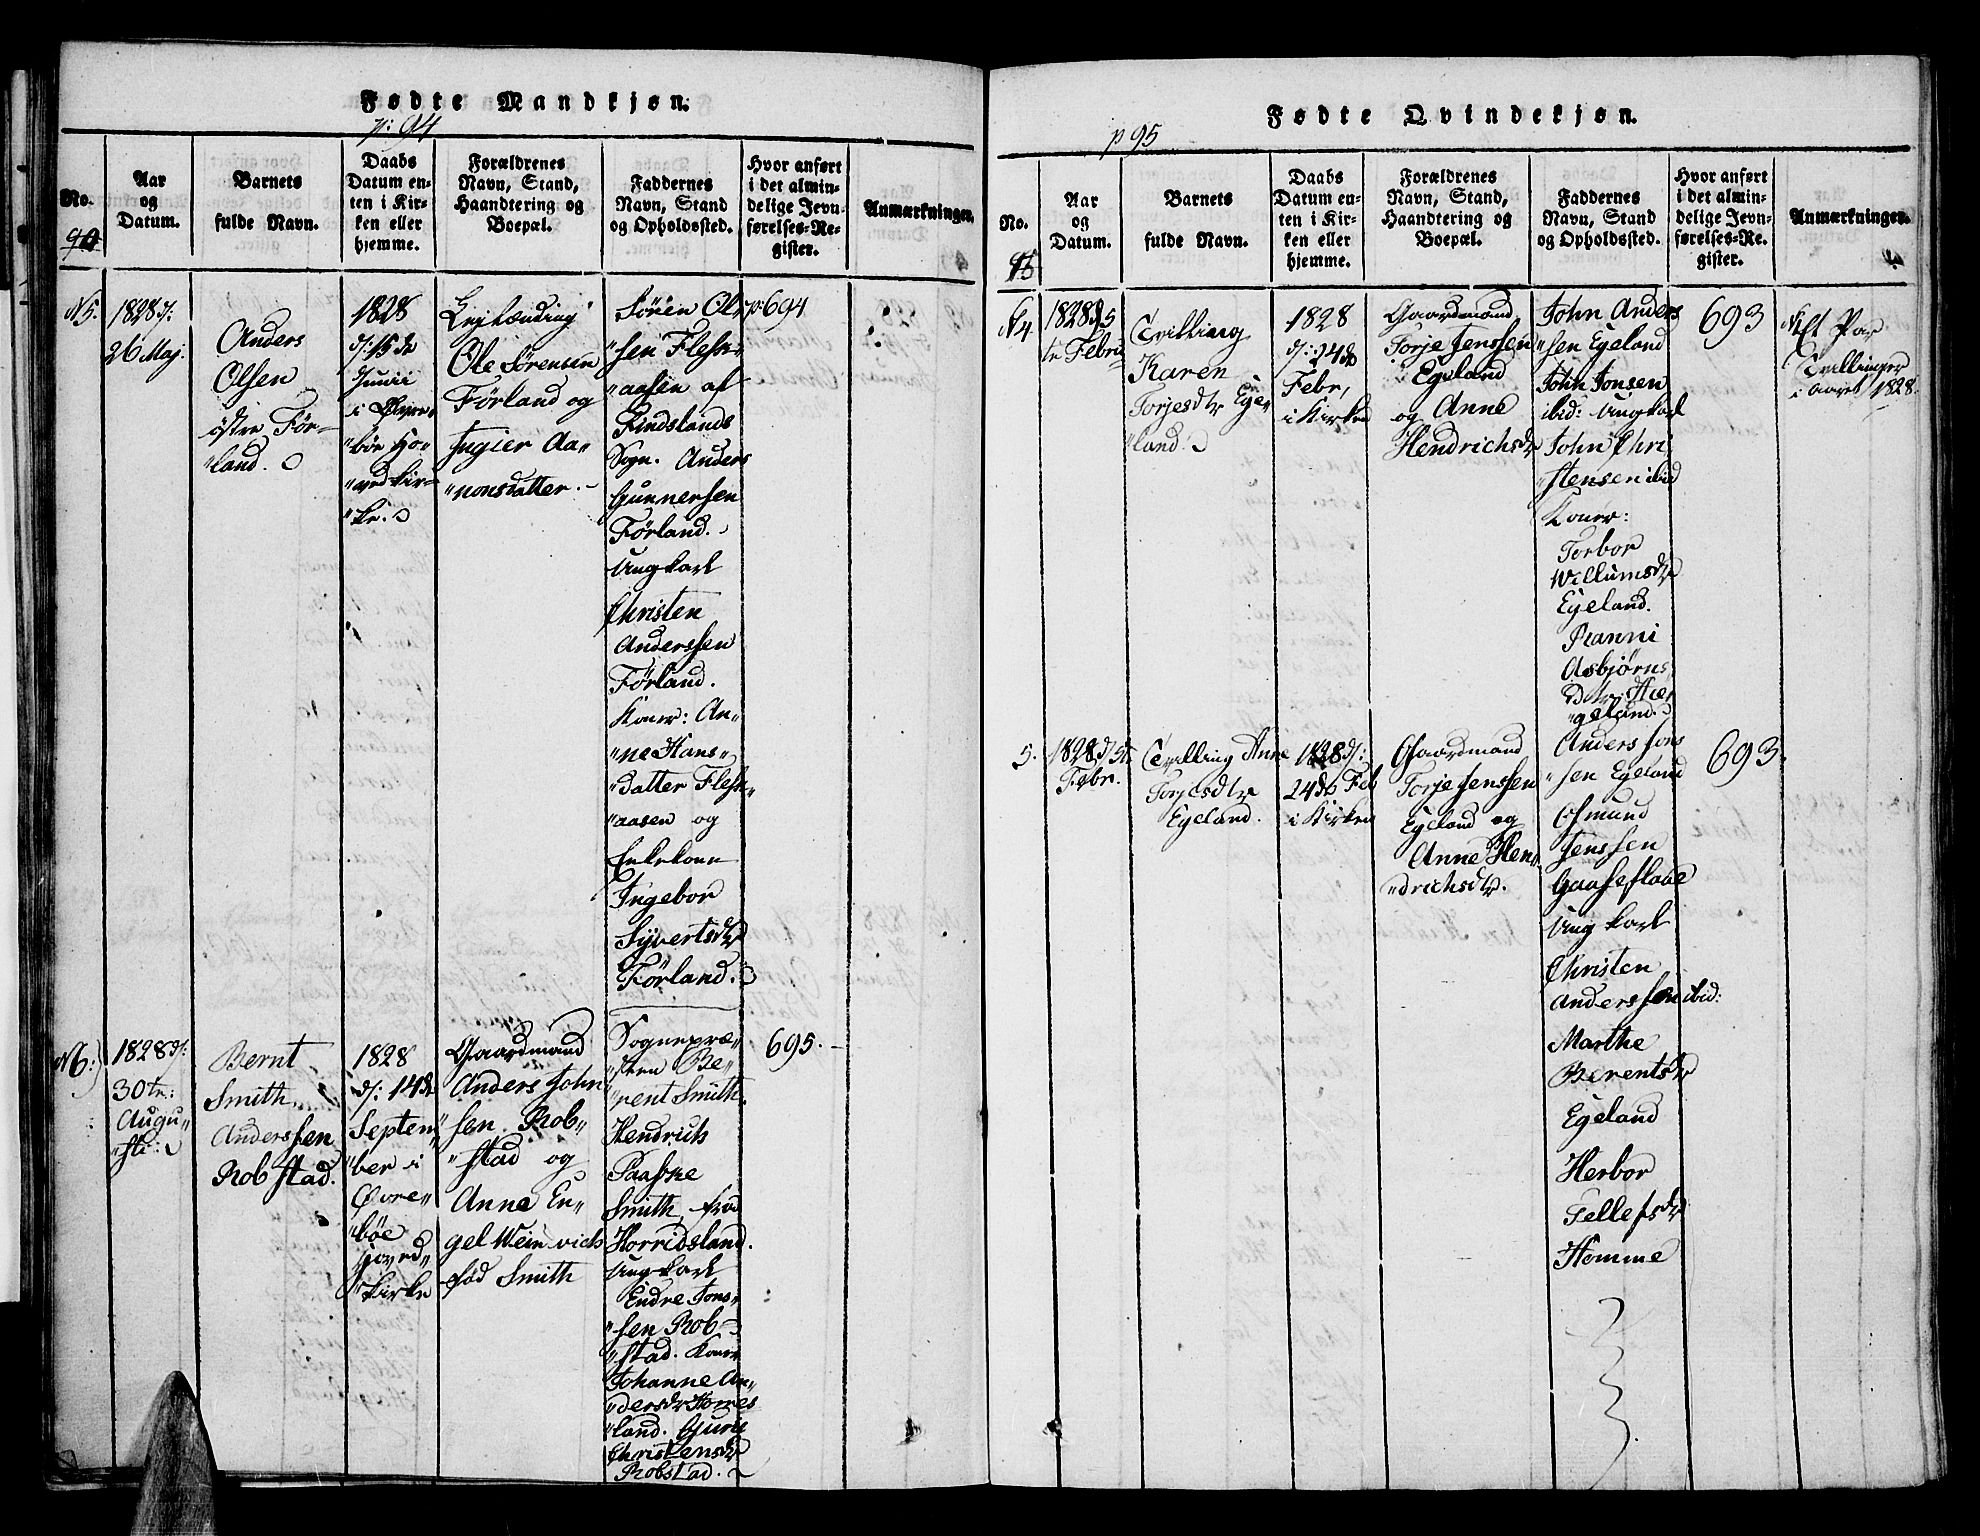 Fødte Mandkjøn.
p: 94
No.
Aar
og
Datum.
Barnets
fulde Navn.
Daabs
Datum en-
ten i Kir-
ken eller
hjemme.
Forældrenes
Navn, Stand,
Haandtering og
Boepæl.
Faddernes
Navn, Stand
og Opholdssted.
Hvor anført
i det almin-
delige Jevn-
førelses-Re-
gister.
Anmærkninger.
N5:
1828 d:
26 Maj:
Anders
Olsen
østre För-
"land.
1828
d: 15de
Junii
i Øvre-
"bøe Ho-
"vedkir-
"ke.
Lejlænding
Ole Sørensen
Førland og
Ingier Aa-
"nonsdatter.
Søren Ol-
"sen Flesk-
"aasen af
Findslands
Sogn. Anders
Gunnersen
Førland.
Ungkarl
Christen
Anderssen
Førland.
Koner: An-
"ne Hans-
"Datter Flesk-
"aasen og
Enkekone
Ingebor
Syvertsdtr
Førland.
p: 694
N6:
1828 d:
30te:
Augu-
"sti:
Bernt
Smith
Anderssen
Robstad.
1828
d: 14de
Septem-
"ber i
Øvre-
"bøe
Hoved-
"kirke
Gaardmand
Anders John-
"sen Rob-
"stad og
Anne En-
gel Weinwich
fød Smith
Sognepræ-
"sten Be-
"rent Smith.
Hendrich
Paaske
Smith fra
Horridsland.
Ungkarl
Endre Jons-
"sen Rob-
"stad. Koner
Johanne An-
"dersdtr Homes
"land. Gurie
Christensdtr
Robstad.
695.
Fødte Qvindekjøn.
p 95
No.
Aar
og
Datum.
Barnets
fulde Navn.
Daabs
Datum en-
ten i Kir-
ken eller
hjemme.
Forældrenes
Navn, Stand,
Haandtering og
Boepæl.
Faddernes
Navn, Stand
og Opholdssted.
Hvor anført
i det almin-
delige Jevn-
førelses-Re-
gister.
Anmærkninger.
N4.
1828 d 5
te Febru
Tvilling
Karen
Torjesdtr Ege-
"land.
1828
d: 24de
Febr,
i Kirken
Gaardmand
Torje Jenssen
Egeland
og Anne
Hendrichsdtr
John Anders
"sen Egeland
John Jonsen
ibid: Ungkarl
John Chri
"stensen ibid
Koner:
Torbor
Willumsdtr
Egeland.
Ranni
Asbjørns
Dtr. Hæ-
"geland.
693
Par
Tvillinger
i Aaret 1828.
5.
1828 d 5te
Febr.
Tvilling Anne
Torjesdtr
Egeland.
1828 d:
24de Feb
i Kirken
Gaardmand
Torje Jenssen
Egeland og
Anne Hen-
"drichsdtr.
Anders Jons
"sen Egeland
Osmund
Jenssen
Gaaseflaae
Ungkarl
Christen
Anderssen ibid:
Marthe
Berentsdtr
Egeland
Herbor
Tellefsdtr
Homme
693.